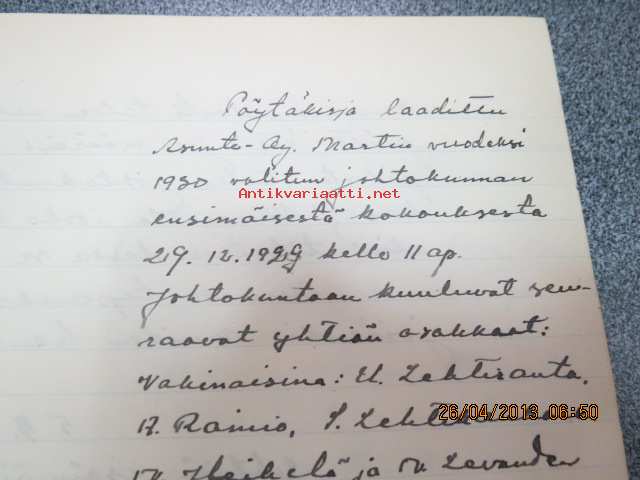 Pöytäkirja laadittu
Asunto-Oy. Martin vuodeksi
1930 valitun johtokunnan
Antikvariaatti.net
ensimäisestä kokouksesta
29. 12. 1929 kello 11 ap.
Johtokuntaan kuuluvat seu-
raavat yhtiön osakkaat:
Vakinaisina: El. Lehtiranta,
A. Rainio, S. Lehti
26/04/2013 06:50
Heikelä ja